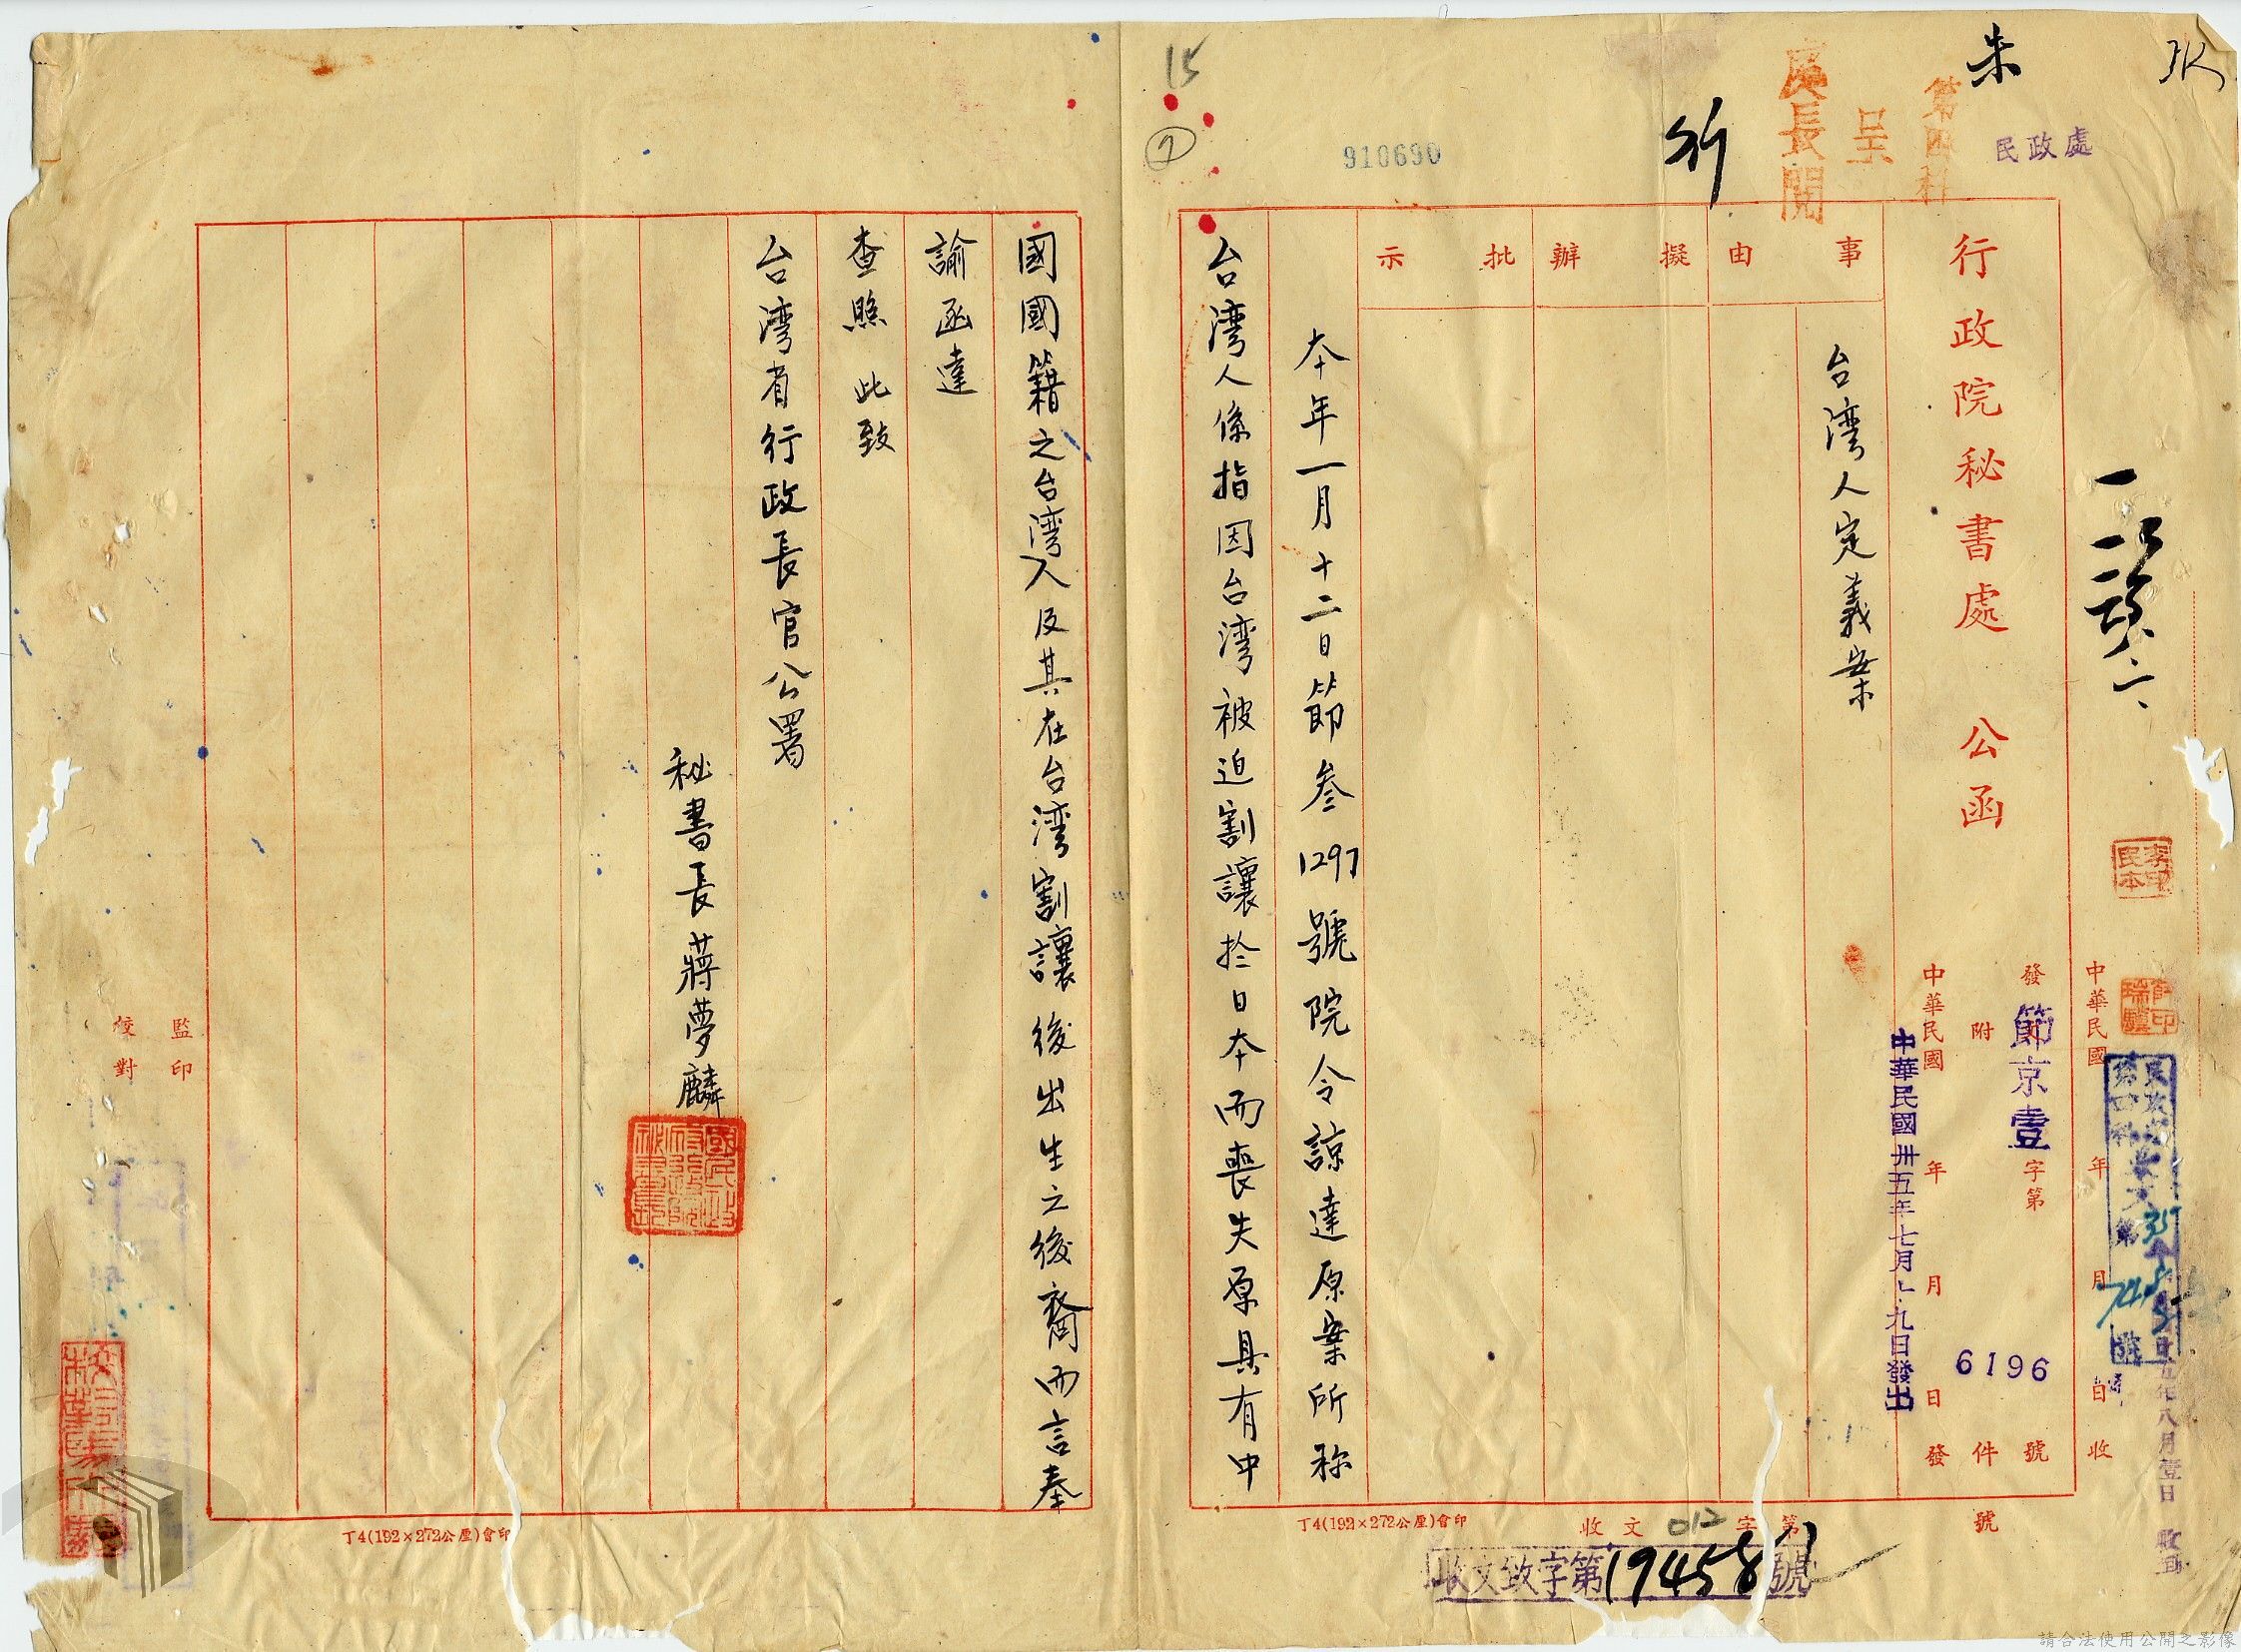 朱
民政處
第四科
呈
處長閱
行
910690
15
7
行政院秘書處 公函
中華民國 年 月 日收
發 節京壹 字第 6196 號
附 件
中華民國 年 月 日發
中華民國卅五年七月十九日發出
事由
擬辦
批示
台湾人定義案
本年一月十二日節叁1297號院令諒達原案所称
台湾人係指因台湾被迫割讓於日本而喪失原具有中
國國籍之台湾人及其在台湾割讓後出生之後裔而言奉
諭函達
查照 此致
台湾省行政長官公署
秘書長蔣夢麟
監印
校對
號
收文 012 字第
收文致字第19458號
丁4(192×272公厘)會印
丁4(192×272公厘)會印
請合法使用公開之影像